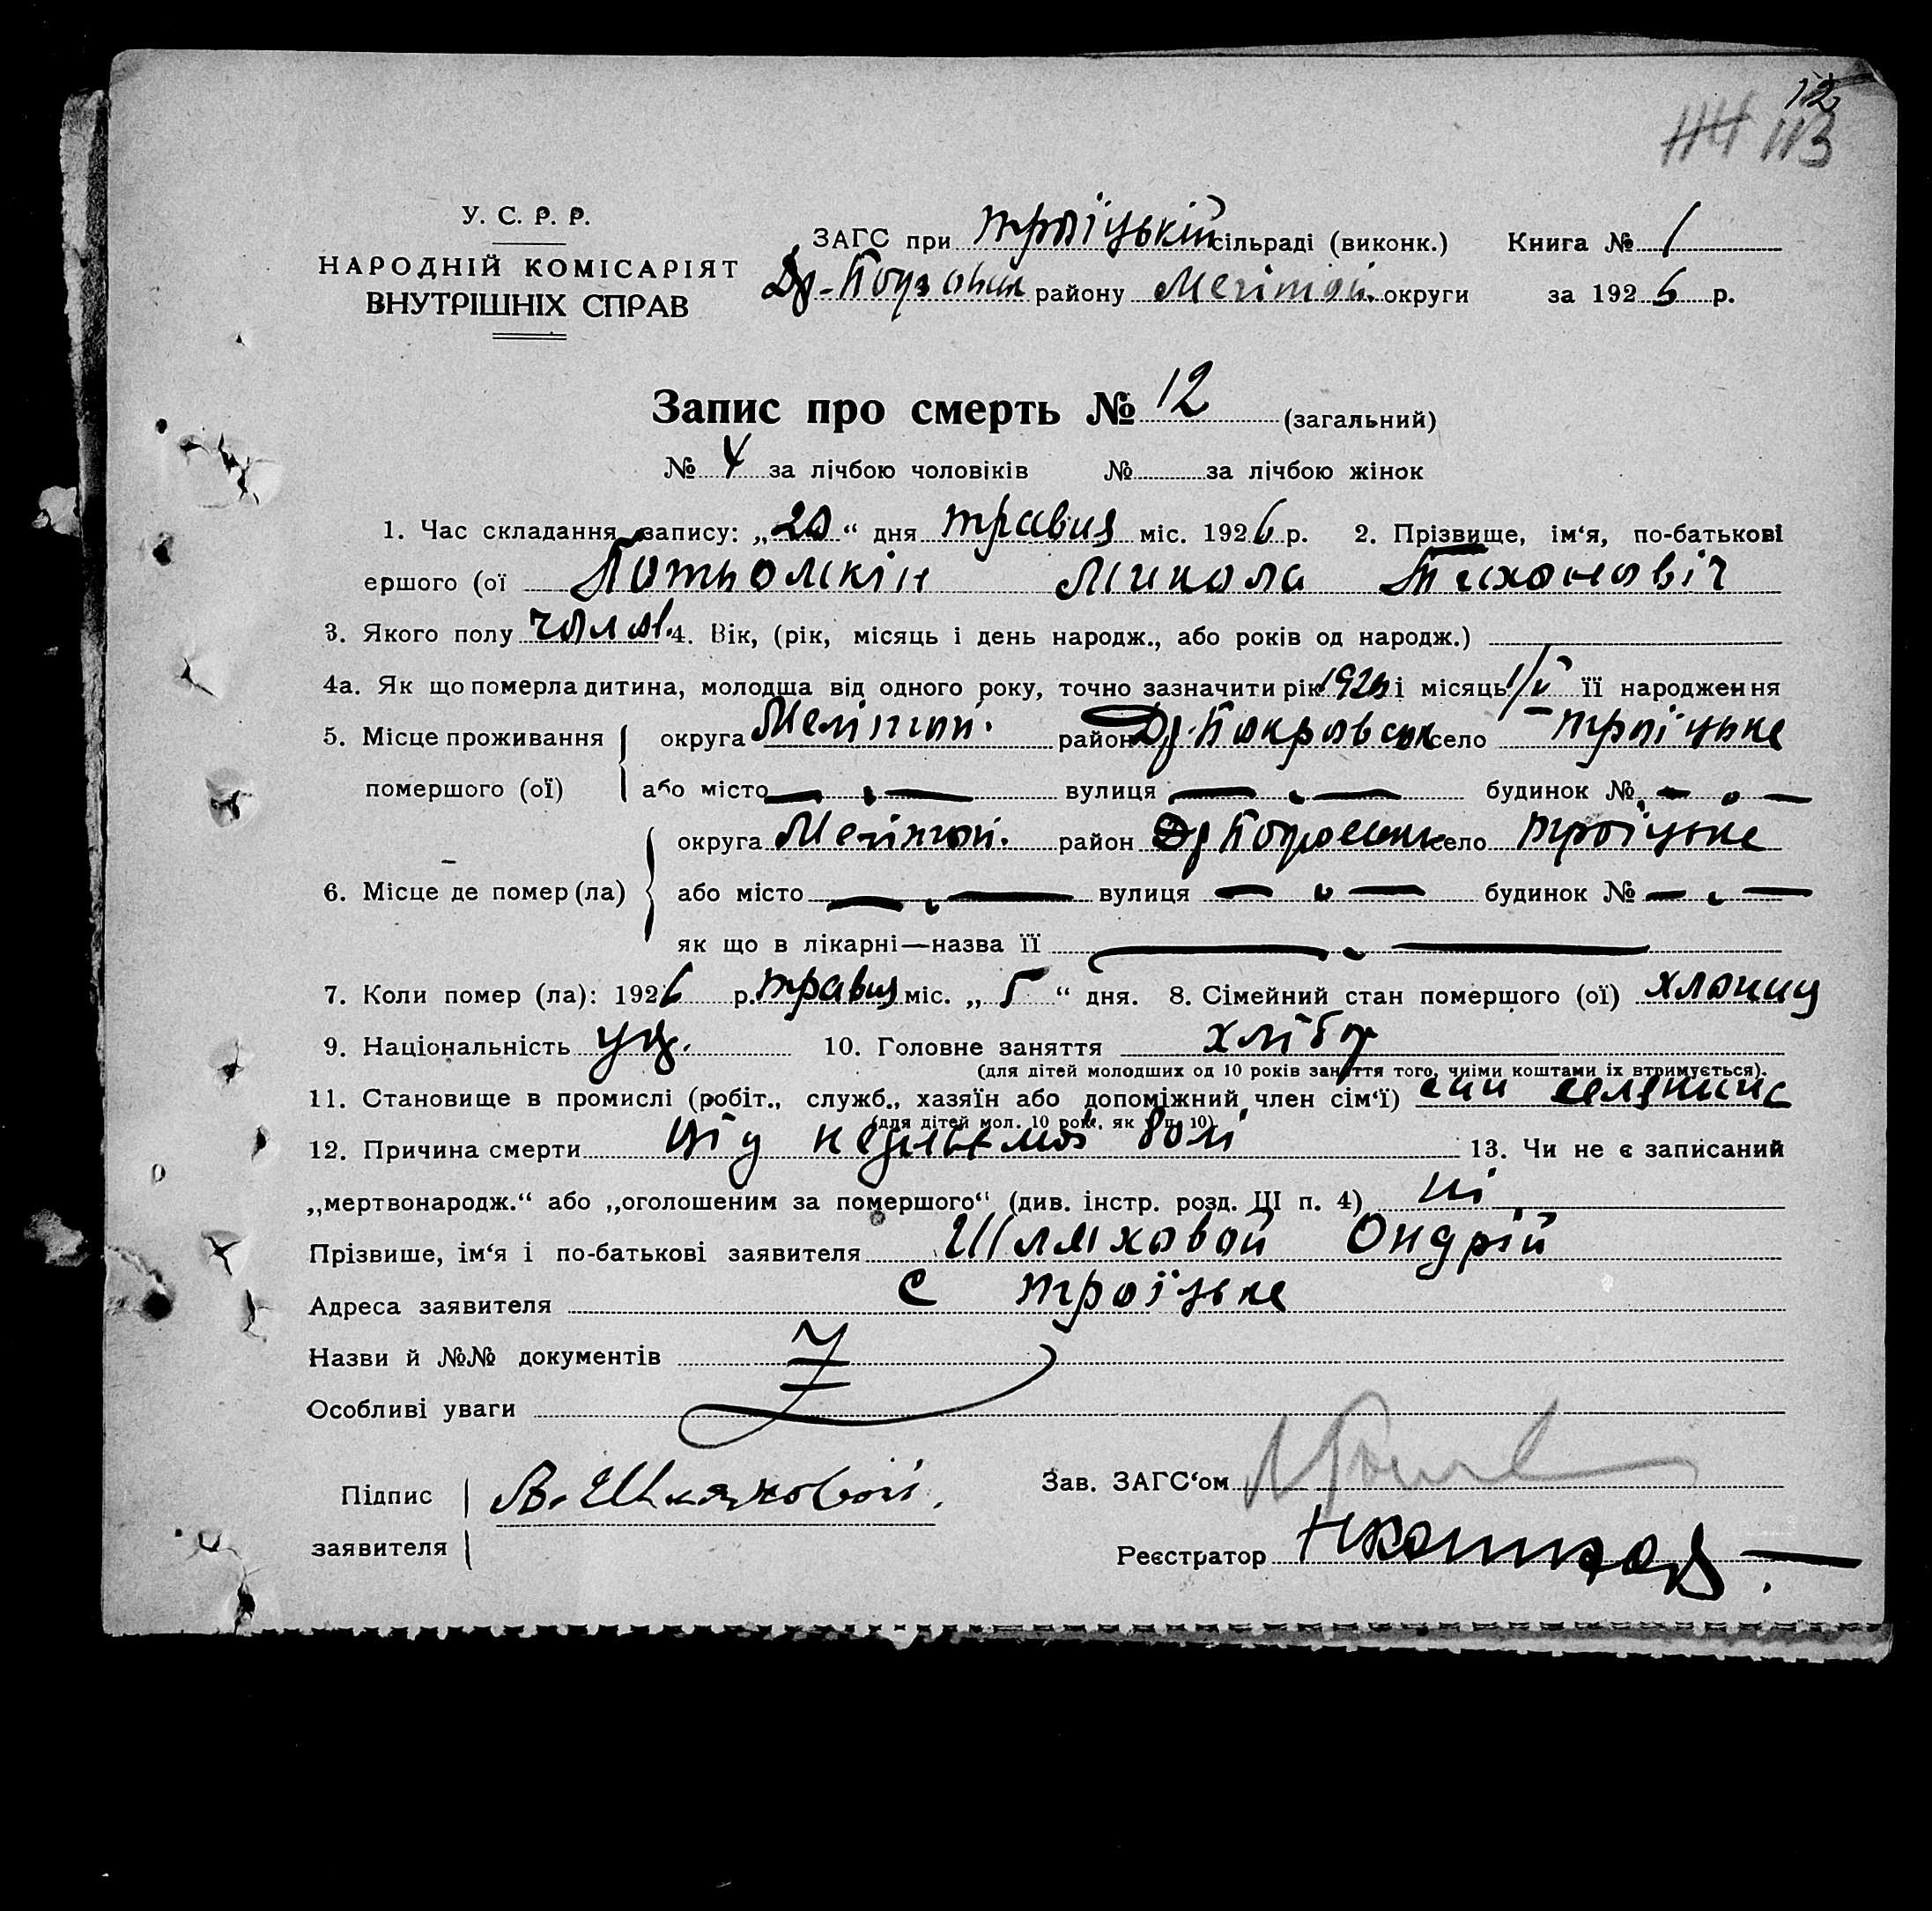 12
114 113
У. С. Р. Р.
НАРОДНІЙ КОМІСАРІЯТ
ВНУТРІШНІХ СПРАВ
ЗАГС при Троїцькій сільраді (виконк.) Книга № 1
району Меліпой. округи за 1926 р.
Запис про смерть № 12 (загальний)
№ 4 за лічбою чоловіків № за лічбою жінок
1. Час складання запису: „20“ дня травня міс. 1926 р. 2. Прізвище, ім‘я, по-батькові
ершого (ої Потьомкін Микола Тихоновіч
3. Якого полу чолов. 4. Вік, (рік, місяць і день народж., або років од народж.)
4а. Як що померла дитина, молодша від одного року, точно зазначити рік 1926 і місяць 1/V її народження
5. Місце проживання округа район Др. Покровськ село Троїцьке
помершого (ої) або місто вулиця будинок №
округа район село Троїцьке
6. Місце де помер (ла) або місто вулиця будинок №
як що в лікарні—назва її
7. Коли помер (ла): 1926 р. травня міс. „5“ дня. 8. Сімейний стан помершого (ої)
9. Національність укр. 10. Головне заняття хлібор
(для дітей молодших од 10 років заняття того, чиїми коштами їх втримується).
11. Становище в промислі (робіт., служб., хазяїн або допоміжний член сім‘ї) син
(для дітей мол. 10 рок., як у п. 10)
12. Причина смерти від 13. Чи не є записаний
„мертвонародж.“ або „оголошеним за помершого“ (див. інстр. розд. III п. 4) ні
Прізвише, ім‘я і по-батькові заявителя Шляховой Ондрій
Адреса заявителя с Троїцьке
Назви й №№ документів
Особливі уваги
Підпис Зав. ЗАГС‘ом
заявителя Шляховой.
Реєстратор